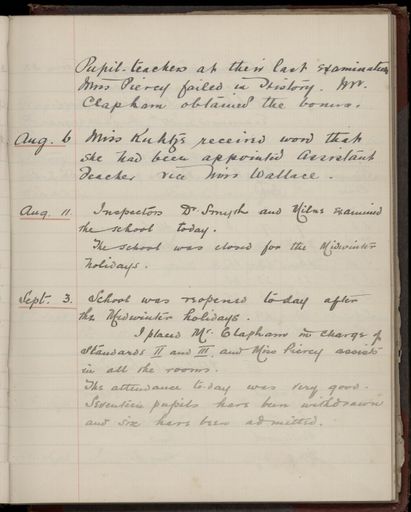 Pupil-teachers at their last examination
Miss Piercy failed in History. Mr.
Clapham obtained the bonus.
Aug. 6 Miss Kuhtze received word that
she had been appointed Assistant
Teacher vice Miss Wallace.
Aug. 11. Inspectors Dr Smyth and Milne examined
the school today.
The school was closed for the Midwinter
holidays.
Sept. 3. School was reopened today after
the Midwinter holidays.
I placed Mr. Clapham in charge of
Standards II and III and Miss Piercy assists
in all the rooms.
The attendance today was very good.
Seventeen pupils have been withdrawn
and six have been admitted.